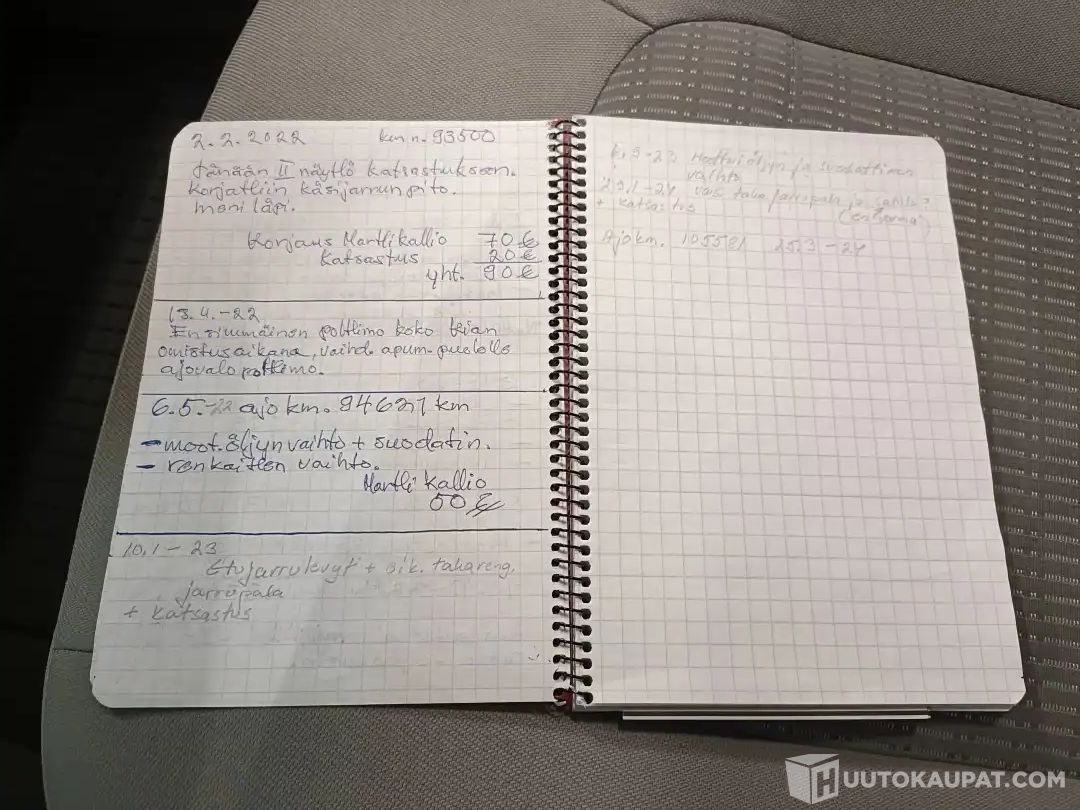 2.2.2022 km n. 93500
tänään II näyttö katsastukseen.
Korjattiin käsijarrun pito.
meni läpi.
Korjaus Martti Kallio 70 €
Katsastus 20 €
yht. 90 €
13.4.-22
Ensimmäinen polttimo koko
omistusaikana, vaihd. apum.puolelle
ajovalo polttimo.
6.5.-22 ajo km. 94627 km
- moot.öljyn vaihto + suodatin.
- renkaitten vaihto.
Martti Kallio
50 €
10.1-23
Etujarrulevyt + oik. takareng.
jarrupala
+ katsastus
6.5-23 ja suodattimen
vaihto
29.1-24 taka jarrupala ja
+ katsastus
Ajokm. 105581 25.3-24
HUUTOKAUPAT.COM